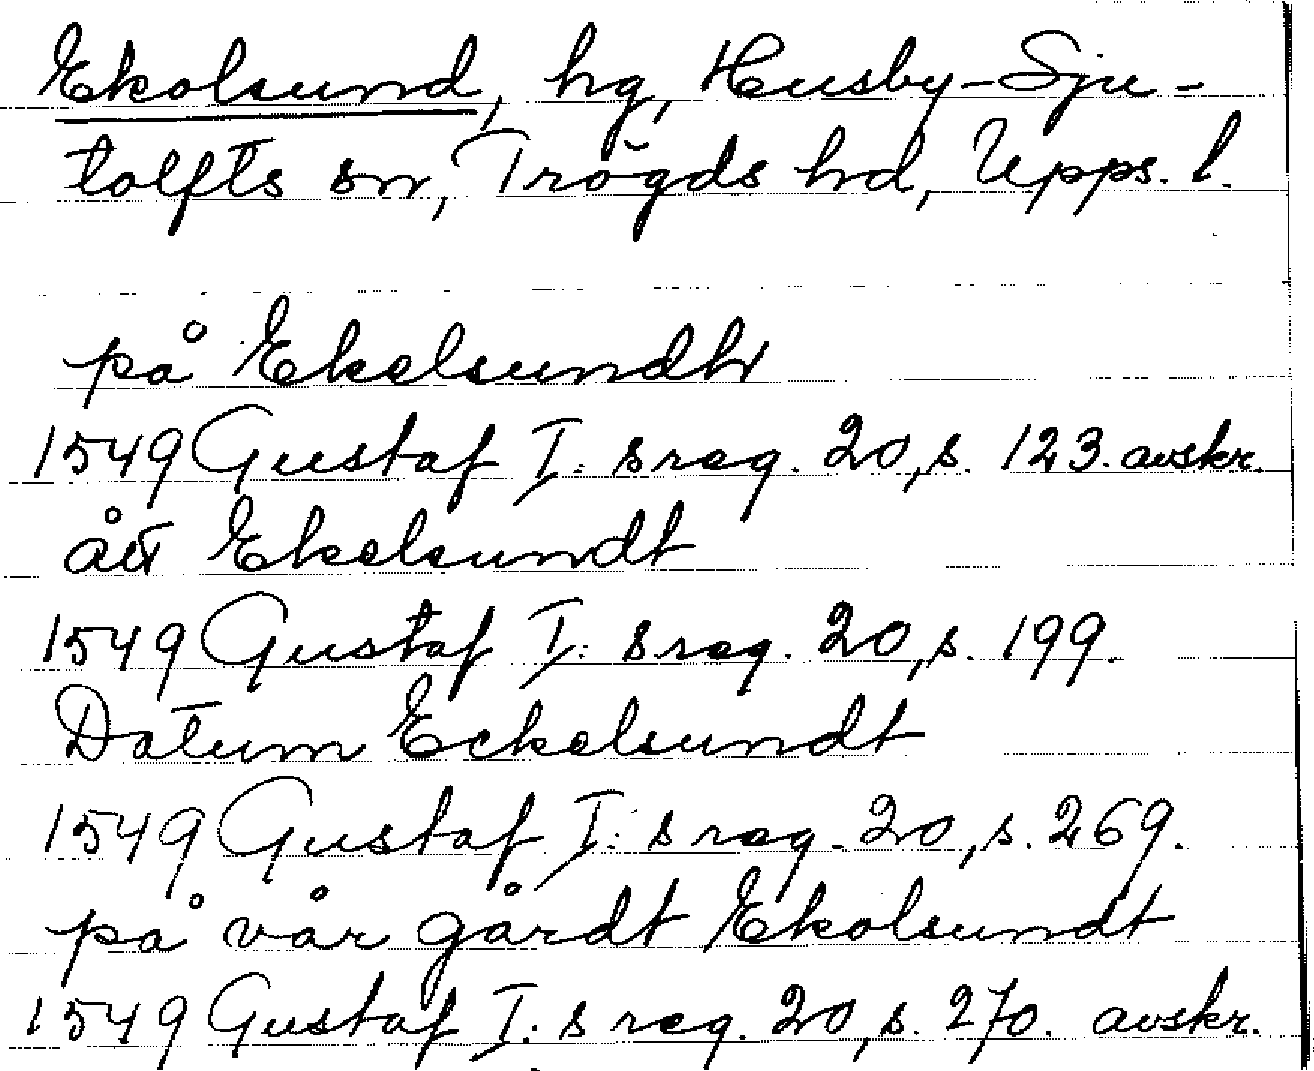 Ekolsund, hg, Husby-Sju-
tolfts sn, Trögds hd, Upps. l.
på Ekelsundh
1549 Gustaf I: s reg. 20, s. 123. avskr.
ått Ekelsundt
1549 Gustaf I: s reg. 20, s. 199.
Datum Eckelsundt
1549 Gustaf I: s reg. 20, s. 269.
på vår gårdt Ekolsundt
1549 Gustaf I: s reg. 20, s. 270. avskr.